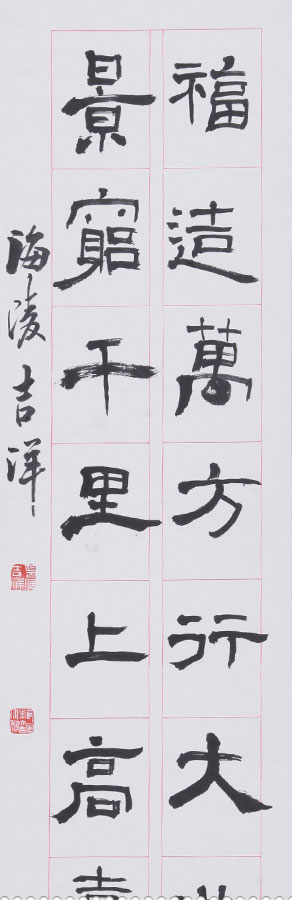 福造萬方行大
景窮千里上高
海陵吉洋